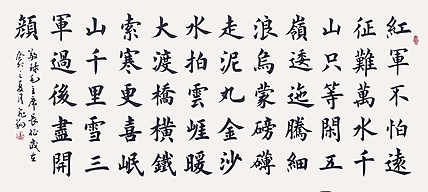 紅軍不怕遠
征難萬水千
山只等閑五
嶺逶迤騰細
浪烏蒙磅礴
走泥丸金沙
水拍雲崕暖
大渡橋橫鐵
索寒更喜岷
山千里雪三
軍過後盡開
顔
毛主席長征